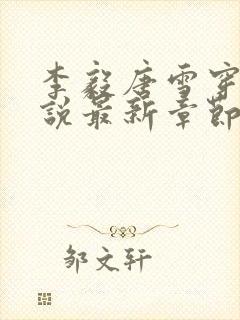 李毅唐雪穿
说最新章节
邹文轩